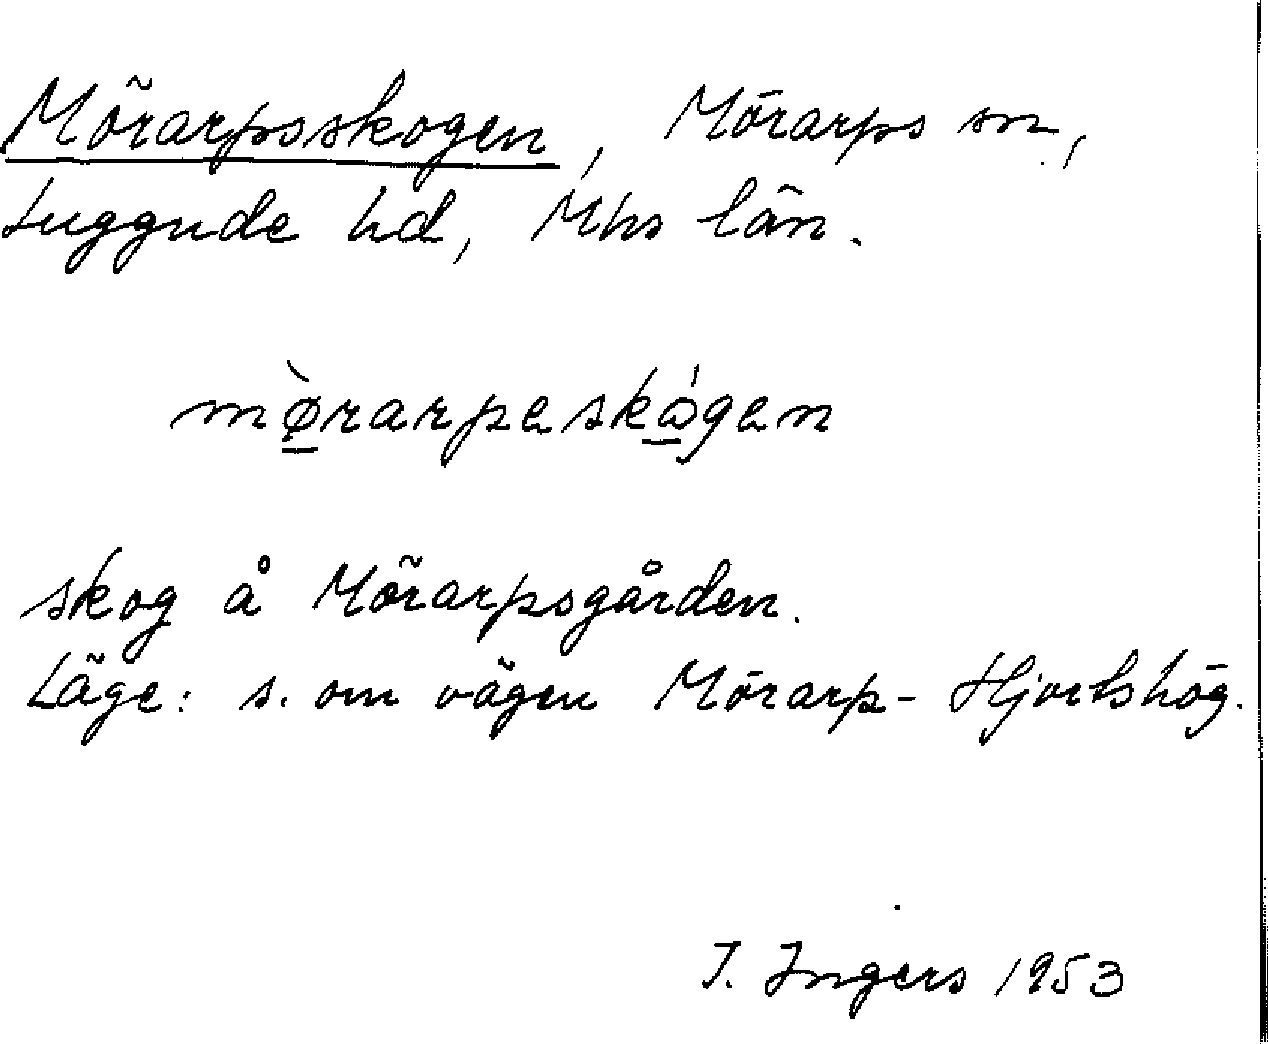 Mörarpsskogen, Mörarps sn,
Luggude hd, Mhs län.
mø̲̀rarpeskǻ̲gen
skog å Mörarpsgården.
Läge: s. om vägen Mörarp - Hjortshög.
I. Ingers 1953